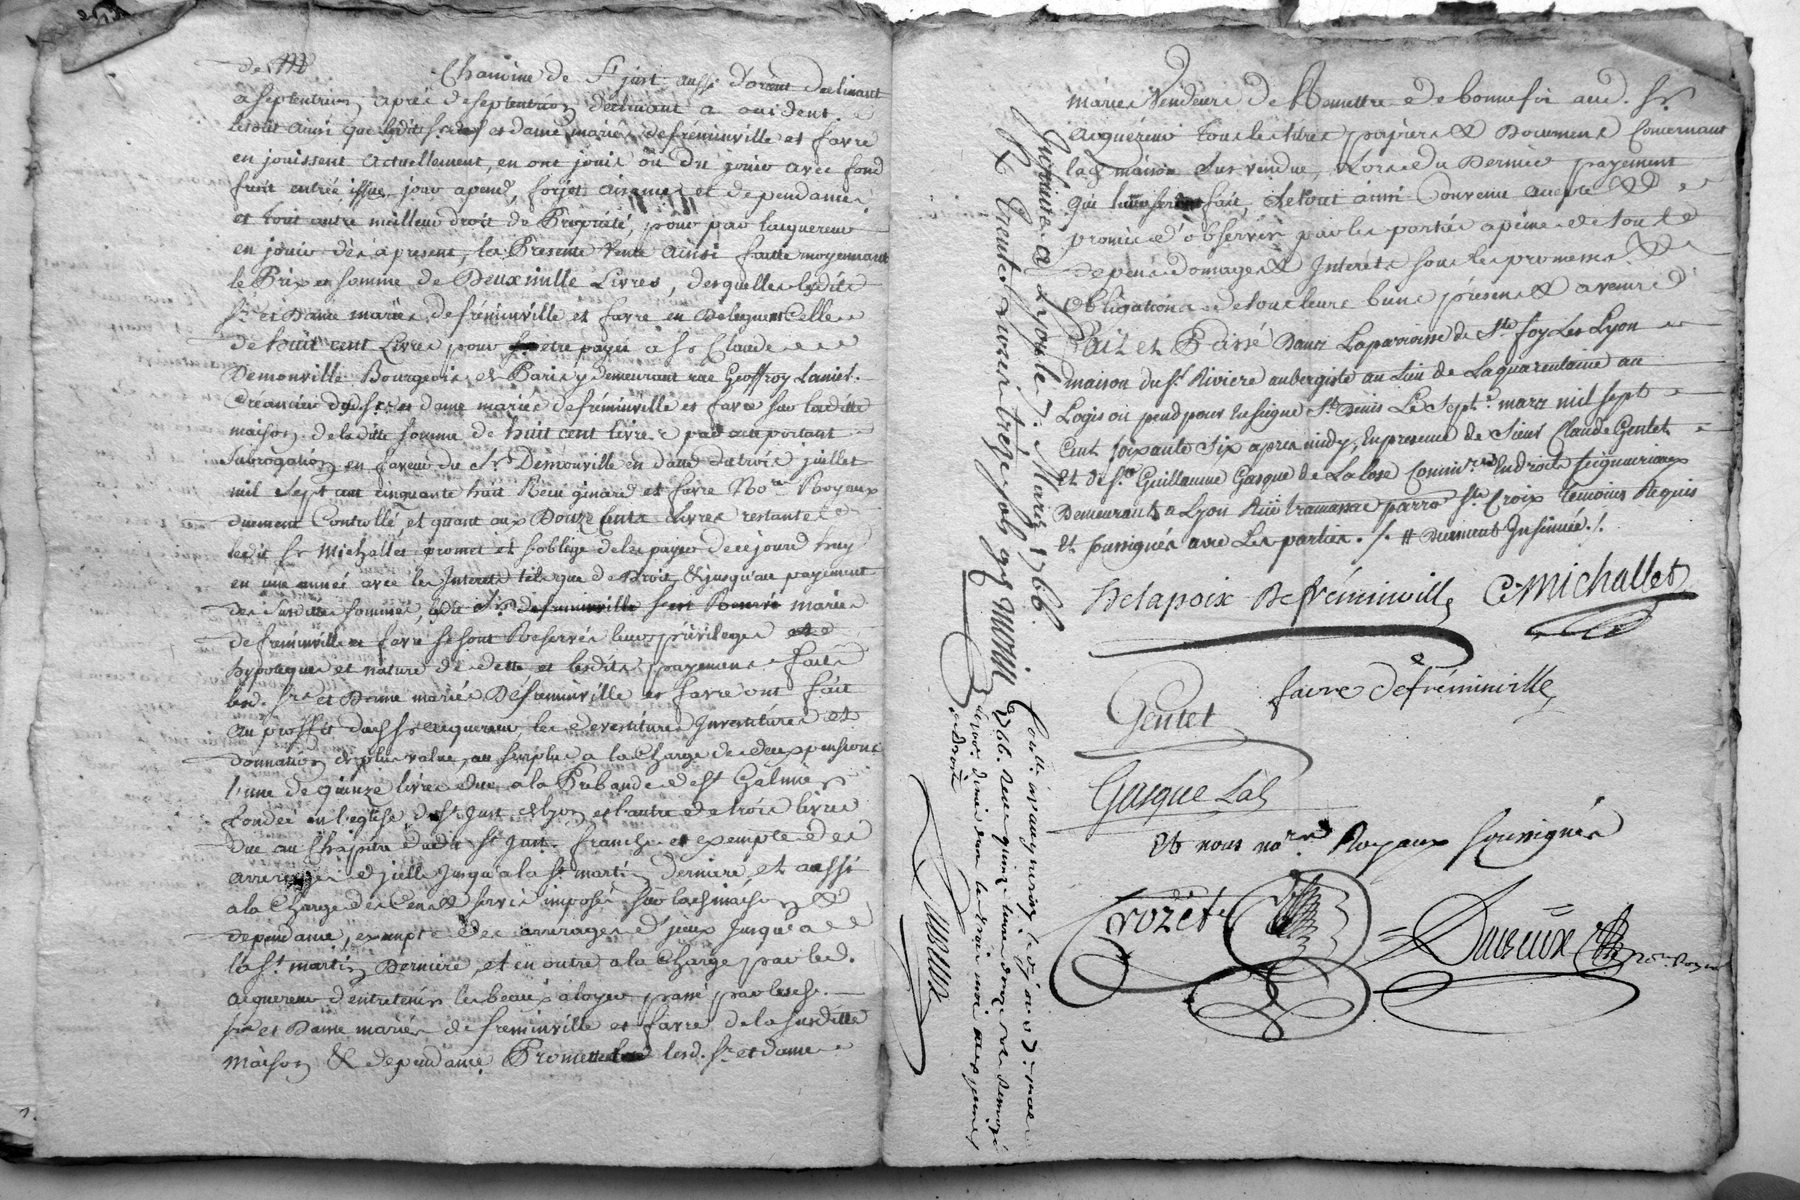 de Mr Chanoine de St just aussi d'orient declinant
a septentrion, après de septentrion declinant a occident.
lesdits ainsi que lesdits sr. et dame mariés defréminville et favre
en jouissent actuellement, en ont joui ou du jouir avec fond
fruit entrée issue, jour apend, forjet, aisances et dependances
et tout autre meilleur droit de Propriété, pour par l'acquereur
en jouir dès a present, la Presente Vente ainsi faitte moyennant
le Prix et somme de Deux mille Livres, desquelles lesdits
sr. et Dame mariés defréminville et favre en deleguent Celle
de huit cent Livres pour etre payée a Sr Claude
Demonville Bourgeois de Paris y demeurant rue Geoffroy Lanier.
Creancier dud. sr. et dame mariés defréminville et favre sur laditte
maison de laditte somme de huit cent livres par acte portant
Subrogation en faveur du Sr. Demonville en datte du trois juillet
mil Sept cent cinquante huit Recu ginard et favre No.re Royaux
duement Controllé, et quant aux Douze Cents Livres restante
ledit Sr Michallet promet et s'oblige de les payer de ce jourd'huy
en une année avec les Interets tels que de Droit, & jusqu'au payement
des Susdittes sommes, lesdits Srs defreminville sont Reservé mariés
defreminville et favre se sont Reservés leurs privileges et
hypoteques et nature de dette et lesdits payements faits
lesd. Srs et Dame mariés Defreminville et favre ont fait
au proffit dud. Sr acquereur les devestitures Investitures et
donnation de plus value, au surplus a la Charge de deux pensions
l'une de quinze livres due a la Prebande de St Galmier
fondée en l'eglise de St Just de Lyon et l'autre de trois livres
due au Chapitre dudit St Just. franche et exempte des
arrerages d'jcelle Jusqu'a la St martin derniere, et aussi
a la Charge des Cens & servis imposés sur lad. maison &
dependances, exempte des arrerages d'jceux Jusqu'a
la St. martin Derniere, et en outre a la Charge par led.
acquereur d'entretenir les beaux a loyer passé par lesd.
srs et Dame mariés defreminville et favre de la susditte
Maison & dependances Promettent lesd. sr. et dame
mariés Vendeurs de Remettre de bonne foi aud. Sr.
acquéreur tous les titres papiers & Documens Concernant
la d. maison Sus vendue, Lors du Dernier payement
qui sera fait, Le tout ainsi Convenu accepté &&
promis d'observer par les parties a peine de tous
depens domages & Interets sous les promesses, &
obligations de tous leurs biens présens & avenir
Fait et Passé Dans La paroisse de Ste foy Les Lyon
maison du Sr. Riviere aubergiste au Lieu de La quarantaine au
Logis où pend pour Enseigne St Denis Le Sept.e mars mil sept
Cent soixante six apres midy, En presence de Sieur Claude Gentet
Et de Sr. Guillaume Gasque de Lalose Commis.re En droits seigneuriaux
Demeurants a Lyon Ruë tramassac parro.sse Ste Croix Temoins Requis
Et soussignés avec Les parties. /. # Duement Insinuée. /.
Delapoix Defréminville C Michallet
favre defréminville
Gentet
Gasque Lal
Et nous no.res Royaux soussignés
Crozet
Dureux no.re Royal
Insinuée a Lyon le 7. Mars 1766.
R. trente livres treize sols 9d Morin
1766. Reçu quinze livres douze sols
Dureux